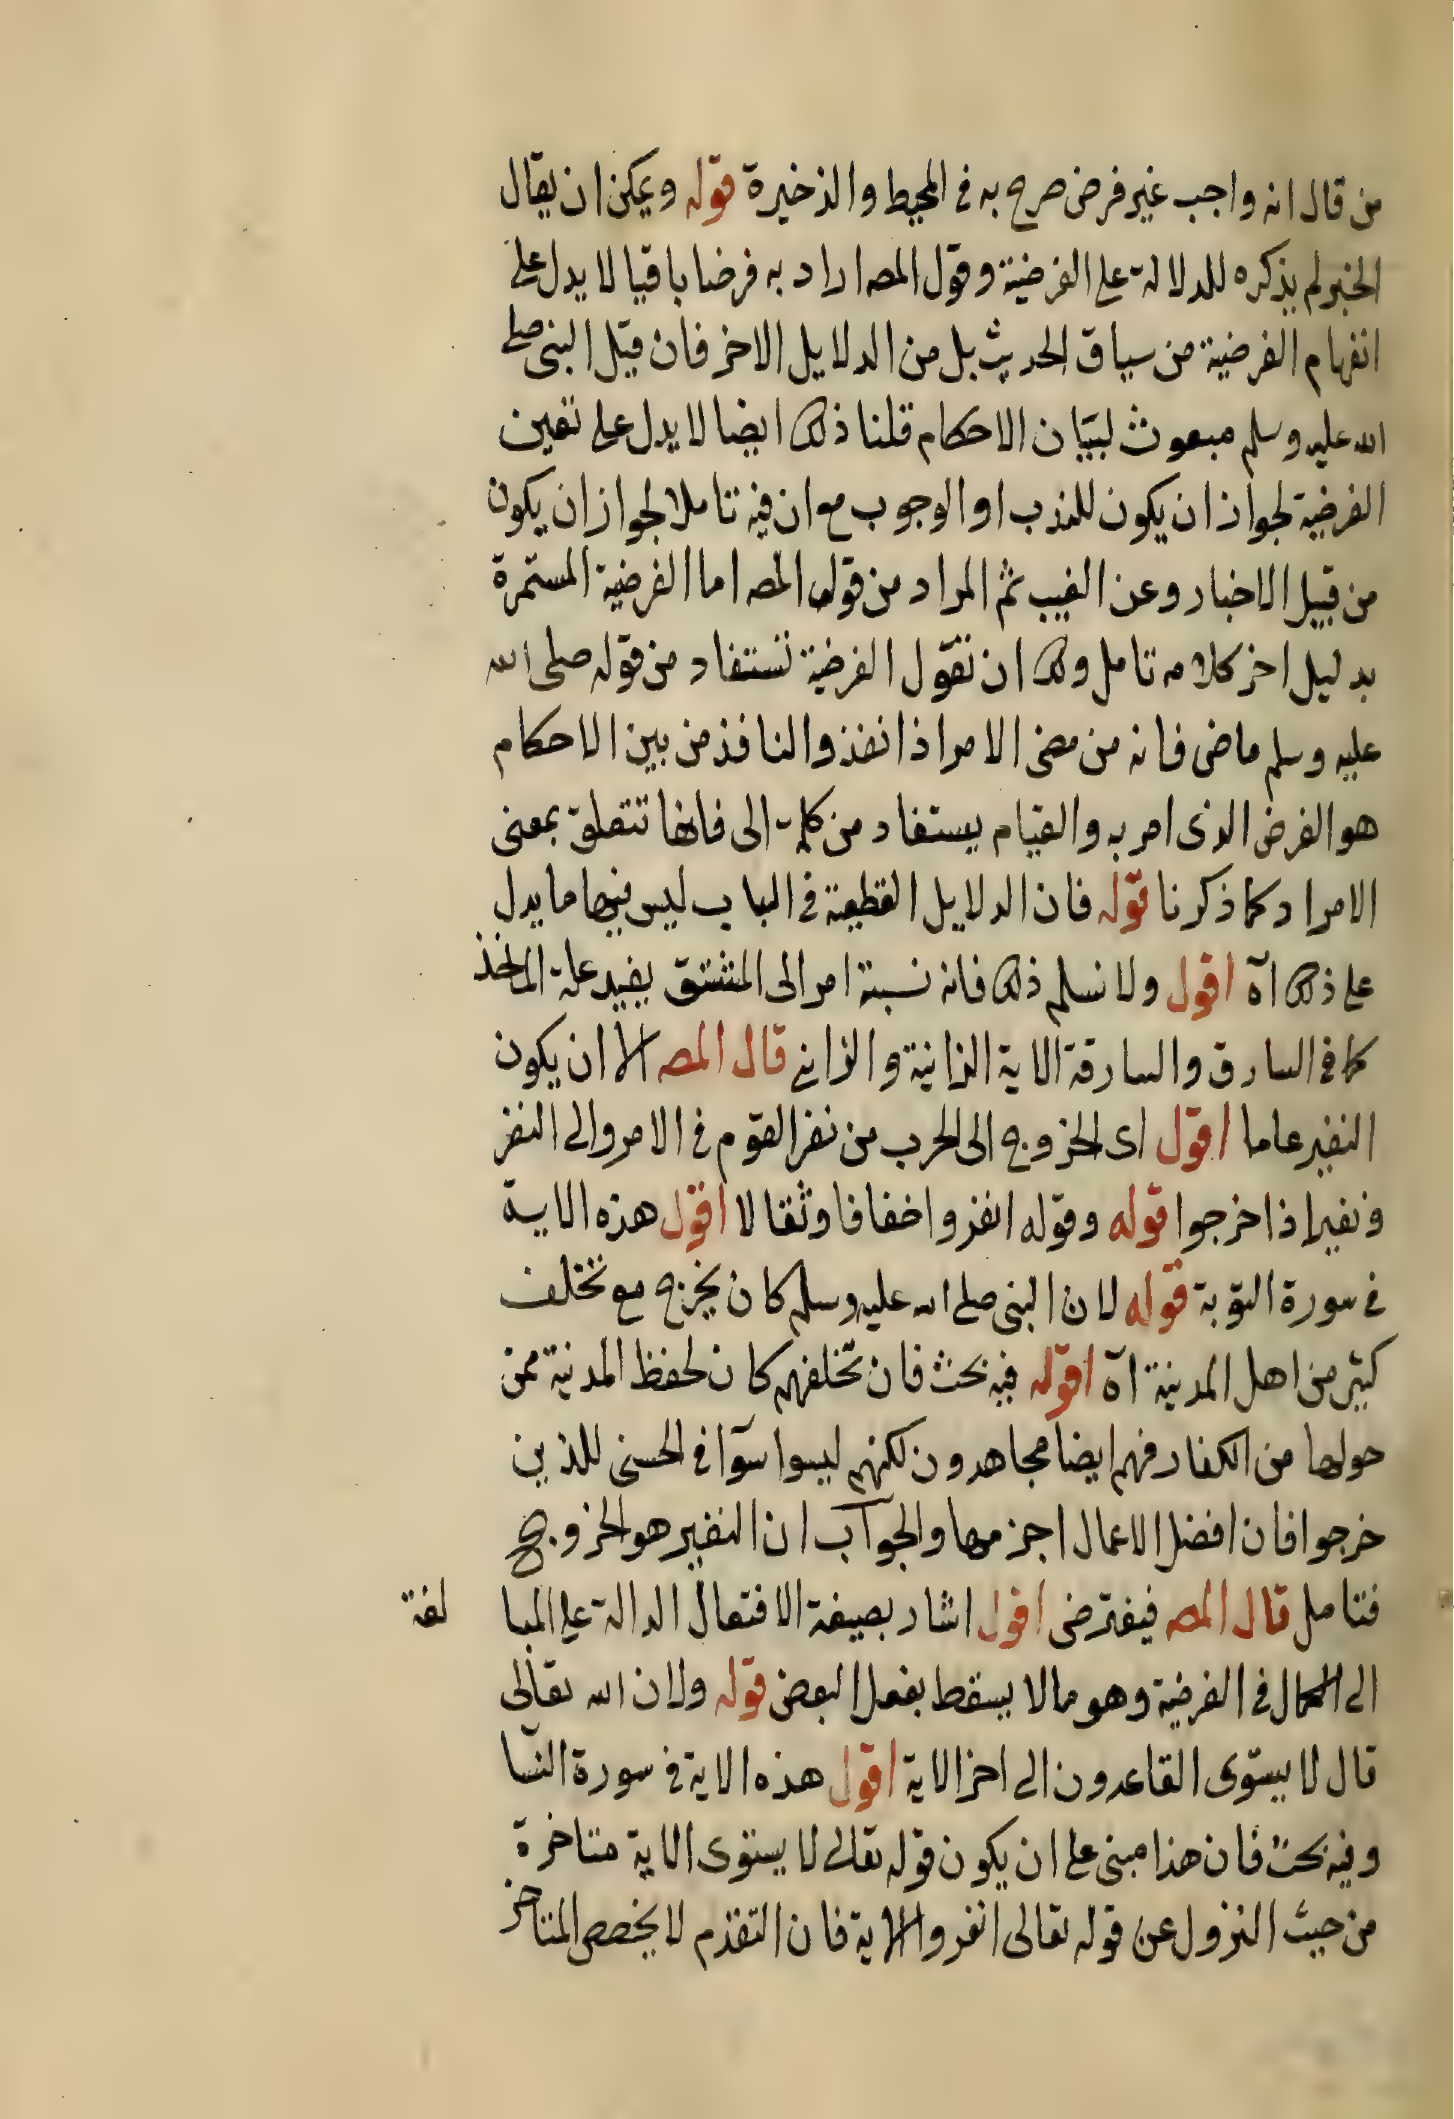 من قال انه واجب غير فرض صرح به في المحيط والذخيرة قوله ويمكن ان يقال
الخبر لم يذكره للدلالة على الفرضية وقول المصه اراد به فرضا باقيا لا يدل على
انفهام الفرضية من سياق الحديث بل من الدلايل الاخر فان قيل النبى صلى
الله عليه وسلم مبعوث لبيان الاحكام قلنا ذلك ايضا لا يدل على تعين
الفرضية لجواز ان يكون للندب او الوجوب مع ان فيه تاملا لجواز ان يكون
من قبيل الاخبار وعن الغيب ثم المراد من قول المصه اما الفرضية المستمرة
بدليل اخر كلامه تامل ولك ان تقول الفرضية تستفاد من قوله صلى الله
عليه وسلم ماضى فانه من مضى الامر اذا نفذ والنافذ من بين الاحكام
هو الفرض الذى امر به والقيام يستفاد من كلمة الى فانها تتعلق بمعنى
الامراد كما ذكرنا قوله فان الدلايل القطعية في الباب ليس فيها ما يدل
على ذلك آه اقول ولا نسلم ذلك فانه نسبة امر الى المشتق يفيد علة الماخذ
كما في السارق والسارقة الاية الزانية والزاني قال المصه الا ان يكون
النفير عاما اقول اى الخروج الى الحرب من نفر القوم في الامر والى النفر
ونفيرا اذا خرجوا قوله وقوله انفروا خفافا وثقالا اقول هذه الاية
في سورة التوبة قوله لان النبى صلى الله عليه وسلم كان يخرج مع تخلف
كثير من اهل المدينة آه اقوله فيه بحث فان تخلفهم كان لحفظ المدينة ممن
حولها من الكفار فهم ايضا مجاهدون لكنهم ليسوا سوآ في الحسنى للذين
خرجوا فان افضل الاعمال احزمها والجوآب ان النفير هو الخروج
فتامل قال المصه فيفترض اقول اشار بصيغة الافتعال الدالة على المبا لغة
الى الكمال في الفرضية وهو مالا يسقط بفعل البعض قوله ولان الله تعالى
قال لا يستوى القاعدون الى اخر الاية اقول هذه الاية في سورة النسآ
وفيه بحث فان هذا مبنى على ان يكون قوله تعالى لا يستوى الاية متاخرة
من حيث النزول عن قوله تعالى انفروا الاية فان التقدم لا يخصص المتاخر